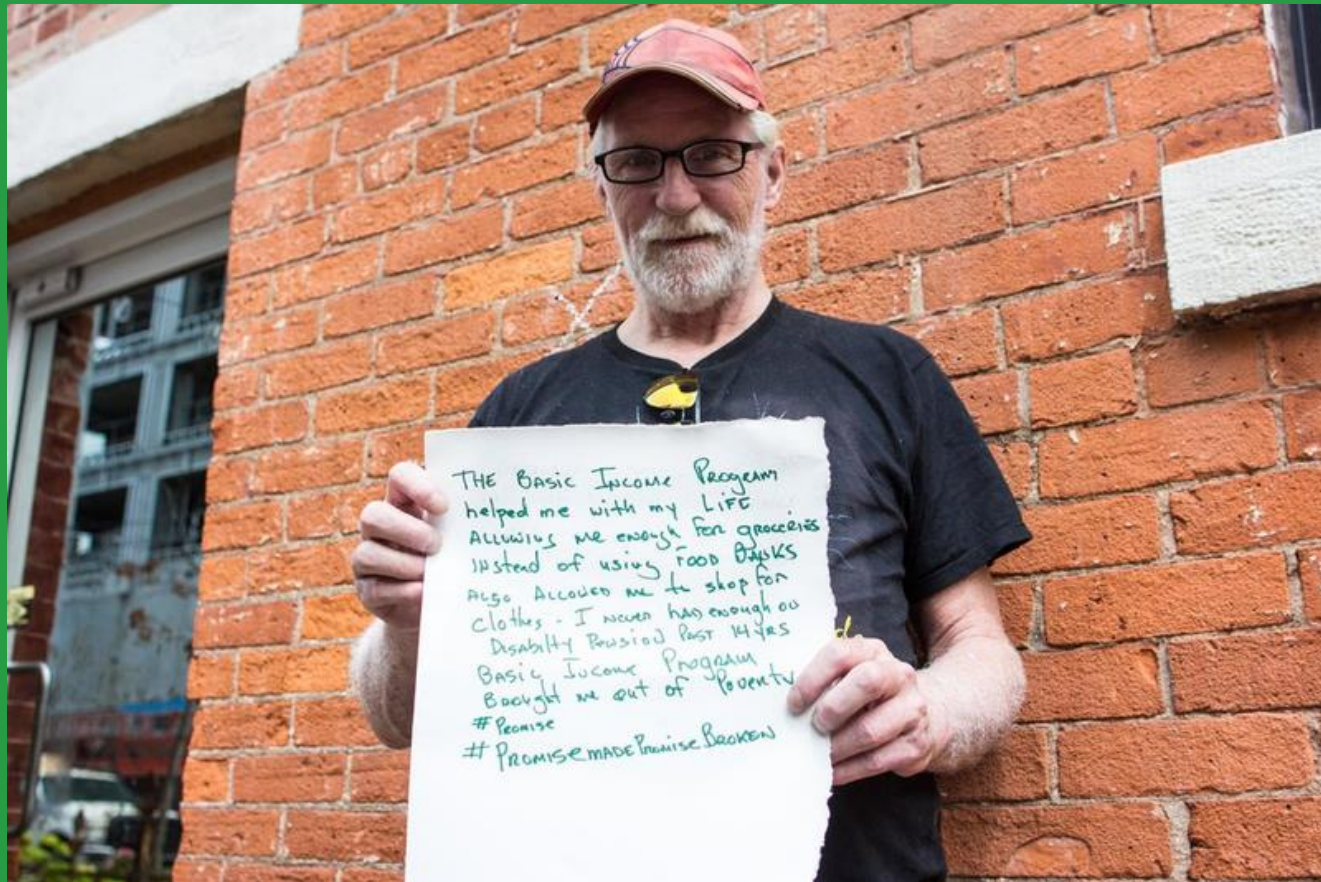 THE BASIC INCOME PROGRAM
helped me with my LIFE
ALLOWING ME enough FOR groceries
INstead of using FOOD BANKS
ALSO ALLOWED me to shop for
Clothes - I never had enough on
Disabilty Pension Past 14 yrs
BASIC INCOME PROGRAM
Brought me out of Poverty
#Promise
#PROMISEMADEPROMISEBROKEN